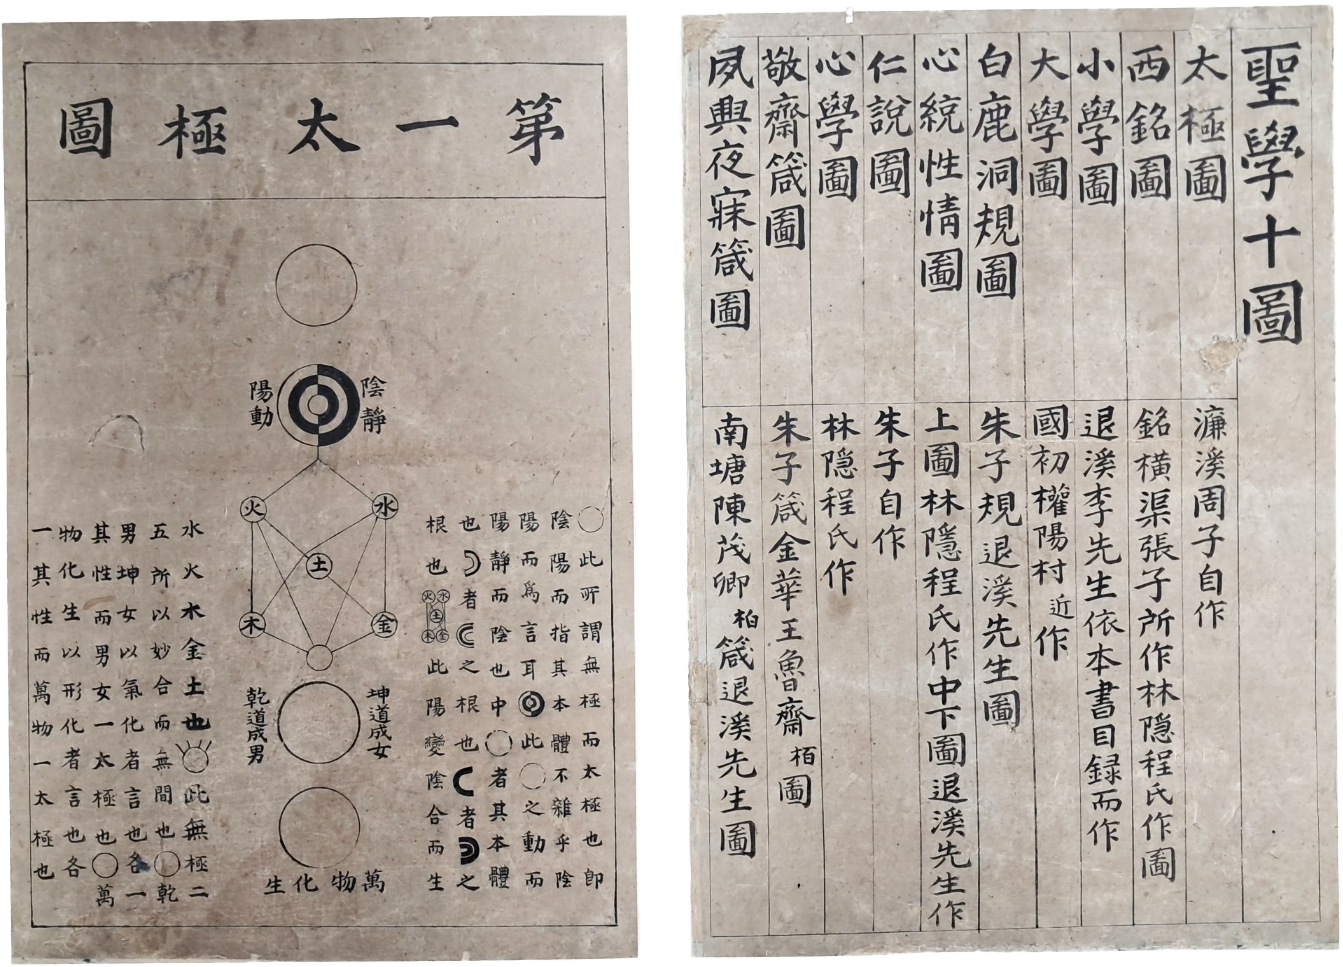 聖學十圖
太極圖 濂溪周子自作
西銘圖 銘橫渠張子所作林隐程氏作圖
小學圖 退溪李先生依本書目録而作
大學圖 國初權陽村近作
白鹿洞規圖 朱子規退溪先生圖
心統性情圖 上圖林隱程氏作中下圖退溪先生作
仁說圖 朱子自作
心學圖 林隐程氏作
敬齋箴圖 朱子箴金華王魯齋柏圖
夙興夜寐箴圖 南塘陳茂卿柏箴退溪先生圖
第一太極圖
陰靜
陽動
水
火
土
金
木
坤道成女
乾道成男
萬物化生
○此所謂無極而太極也即
陰陽而指其本體不雜乎陰
陽而爲言耳此○之動而
陽靜而陰也中○者其本體
也者之根也者之
根也火水土木金此陽變陰合而生
水火木金土也此無極二
五所以妙合而無間也○乾
男坤女以氣化者言也各一
其性而男女一太極也○萬
物化生以形化者言也各
一其性而萬物一太極也